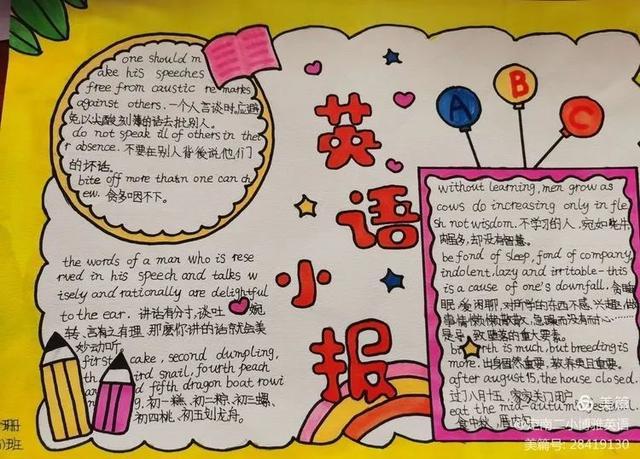 one should m
ake his speeches
free from caustic re marks
against others. 一个人言谈时应避
免以尖酸刻薄的话去批别人。
do not speak ill of others in thei
r absence. 不要在别人背後说他们
的坏话。
bite off more than one can ch
ew. 贪多嚼不下。
the words of a man who is rese
rved in his speech and talks w
isely and rationally are delightful
to the ear. 讲话有分寸,谈吐 婉
转、言有之有理,那麽你讲的话就会美
妙动听。
first cake, second dumpling,
third snail, fourth peach
fifth dragon boat rowi
ng. 初一糕、初二粽、初三螺、
初四桃、初五划龙舟。
英语小报
A B C
without learning, men grow as
cows do increasing only in fle
sh not wisdom. 不学习的人,宛如牝牛
肉虽多,却没有智慧。
be fond of sleep, fond of company
indolent, lazy and irritable - this
is a cause of one's downfall. 贪睡
眠,爱闲聊,对所学的东西不感兴趣,做
事情
是导致堕落的重大要素。
birth is much, but breeding is
more. 出身固然重要,教养更且重要。
after august 15, the house closed
过八月十五,家家关门户
eat the mid-autumn festival
食中秋
班
美篇
中南二小博雅英语
美篇号: 28419130